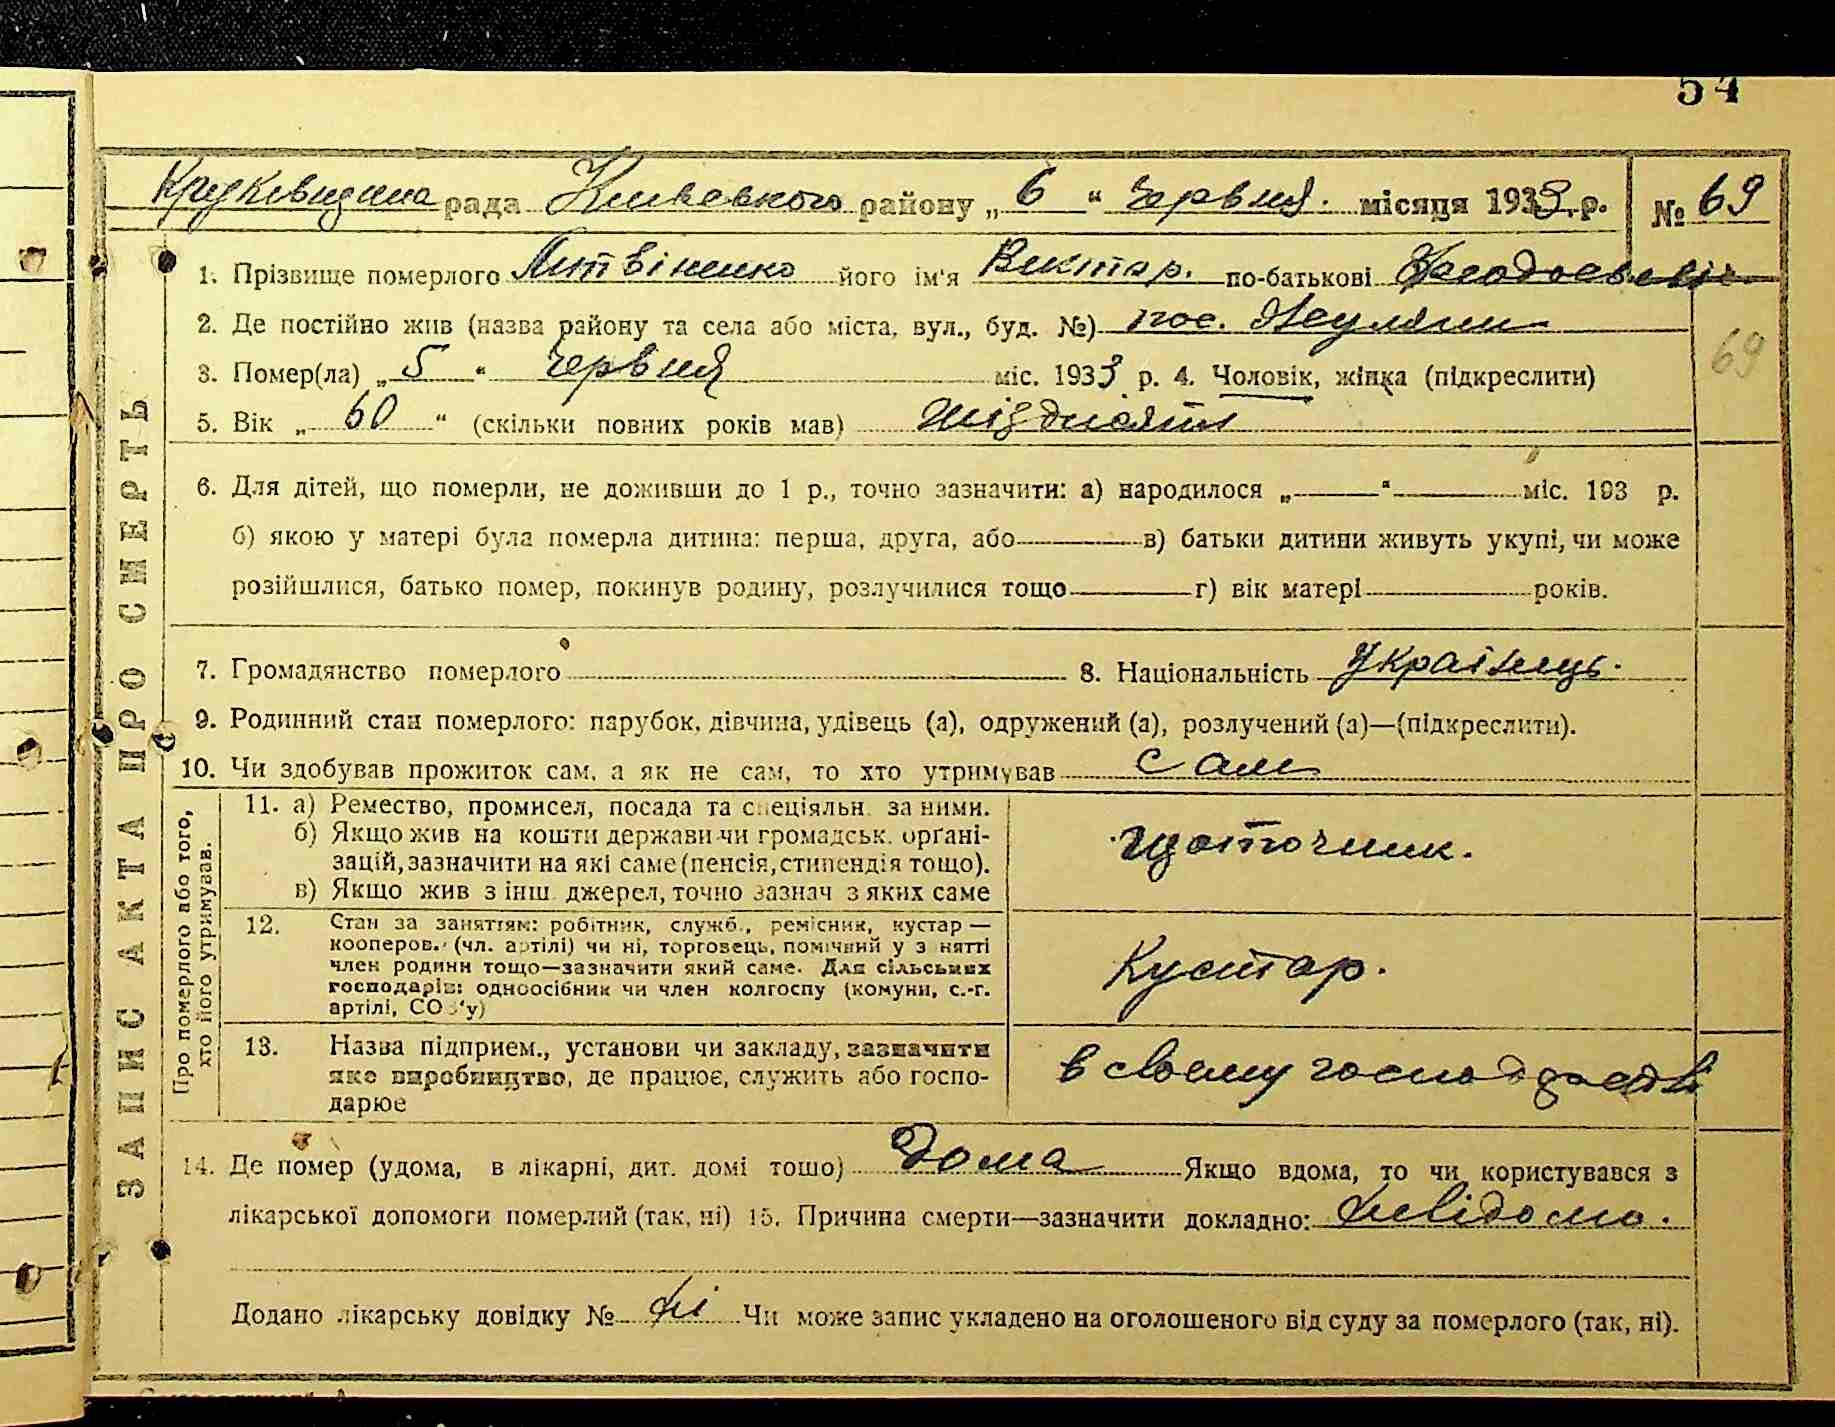 54
Круковщина рада Київського району „ 6 “ червня. місяця 1933 р. № 69
1. Прізвище померлого Литвіненко його ім'я Виктор. по-батькові
2. Де постійно жив (назва району та села або міста, вул., буд. №) пос.
3. Помер(ла) „ 5 “ червня міс. 1933 р. 4. Чоловік, жінка (підкреслити)
69
5. Вік „ 60 “ (скільки повних років мав) шіздисят
6. Для дітей, що померли, не доживши до 1 р., точно зазначити: а) народилося „ “ міс. 193 р.
б) якою у матері була померла дитина: перша, друга, або в) батьки дитини живуть укупі, чи може
розійшлися, батько помер, покинув родину, розлучилися тощо г) вік матері років.
7. Громадянство померлого 8. Національність Українець.
9. Родинний стан померлого: парубок, дівчина, удівець (а), одружений (а), розлучений (а)—(підкреслити).
10. Чи здобував прожиток сам, а як не сам, то хто утримував сам
ЗАПИС АКТА ПРО СМЕРТЬ
Про померлого або того,
хто його утримував.
11. а) Ремество, промисел, посада та спеціяльн. за ними.
б) Якщо жив на кошти держави чи громадськ. органі-
зацій, зазначити на які саме (пенсія, стипендія тощо).
в) Якщо жив з інш. джерел, точно зазнач з яких саме
щоточник.
12. Стан за заняттям: робітник, служб., ремісник, кустар —
кооперов. (чл. артілі) чи ні, торговець, помічний у з нятті
член родини тощо—зазначити який саме. Для сільських
господарів: одноосібник чи член колгоспу (комуни, с.-г.
артілі, СОЗ'у)
Кустар.
13. Назва підприєм., установи чи закладу, зазначити
яке виробництво, де працює, служить або госпо-
дарює
в своему господарстві
14. Де помер (удома, в лікарні, дит. домі тощо) Дома Якщо вдома, то чи користувався з
лікарської допомоги померлий (так, ні) 15. Причина смерти—зазначити докладно: невідомо.
Додано лікарську довідку № ні Чи може запис укладено на оголошеного від суду за померлого (так, ні).